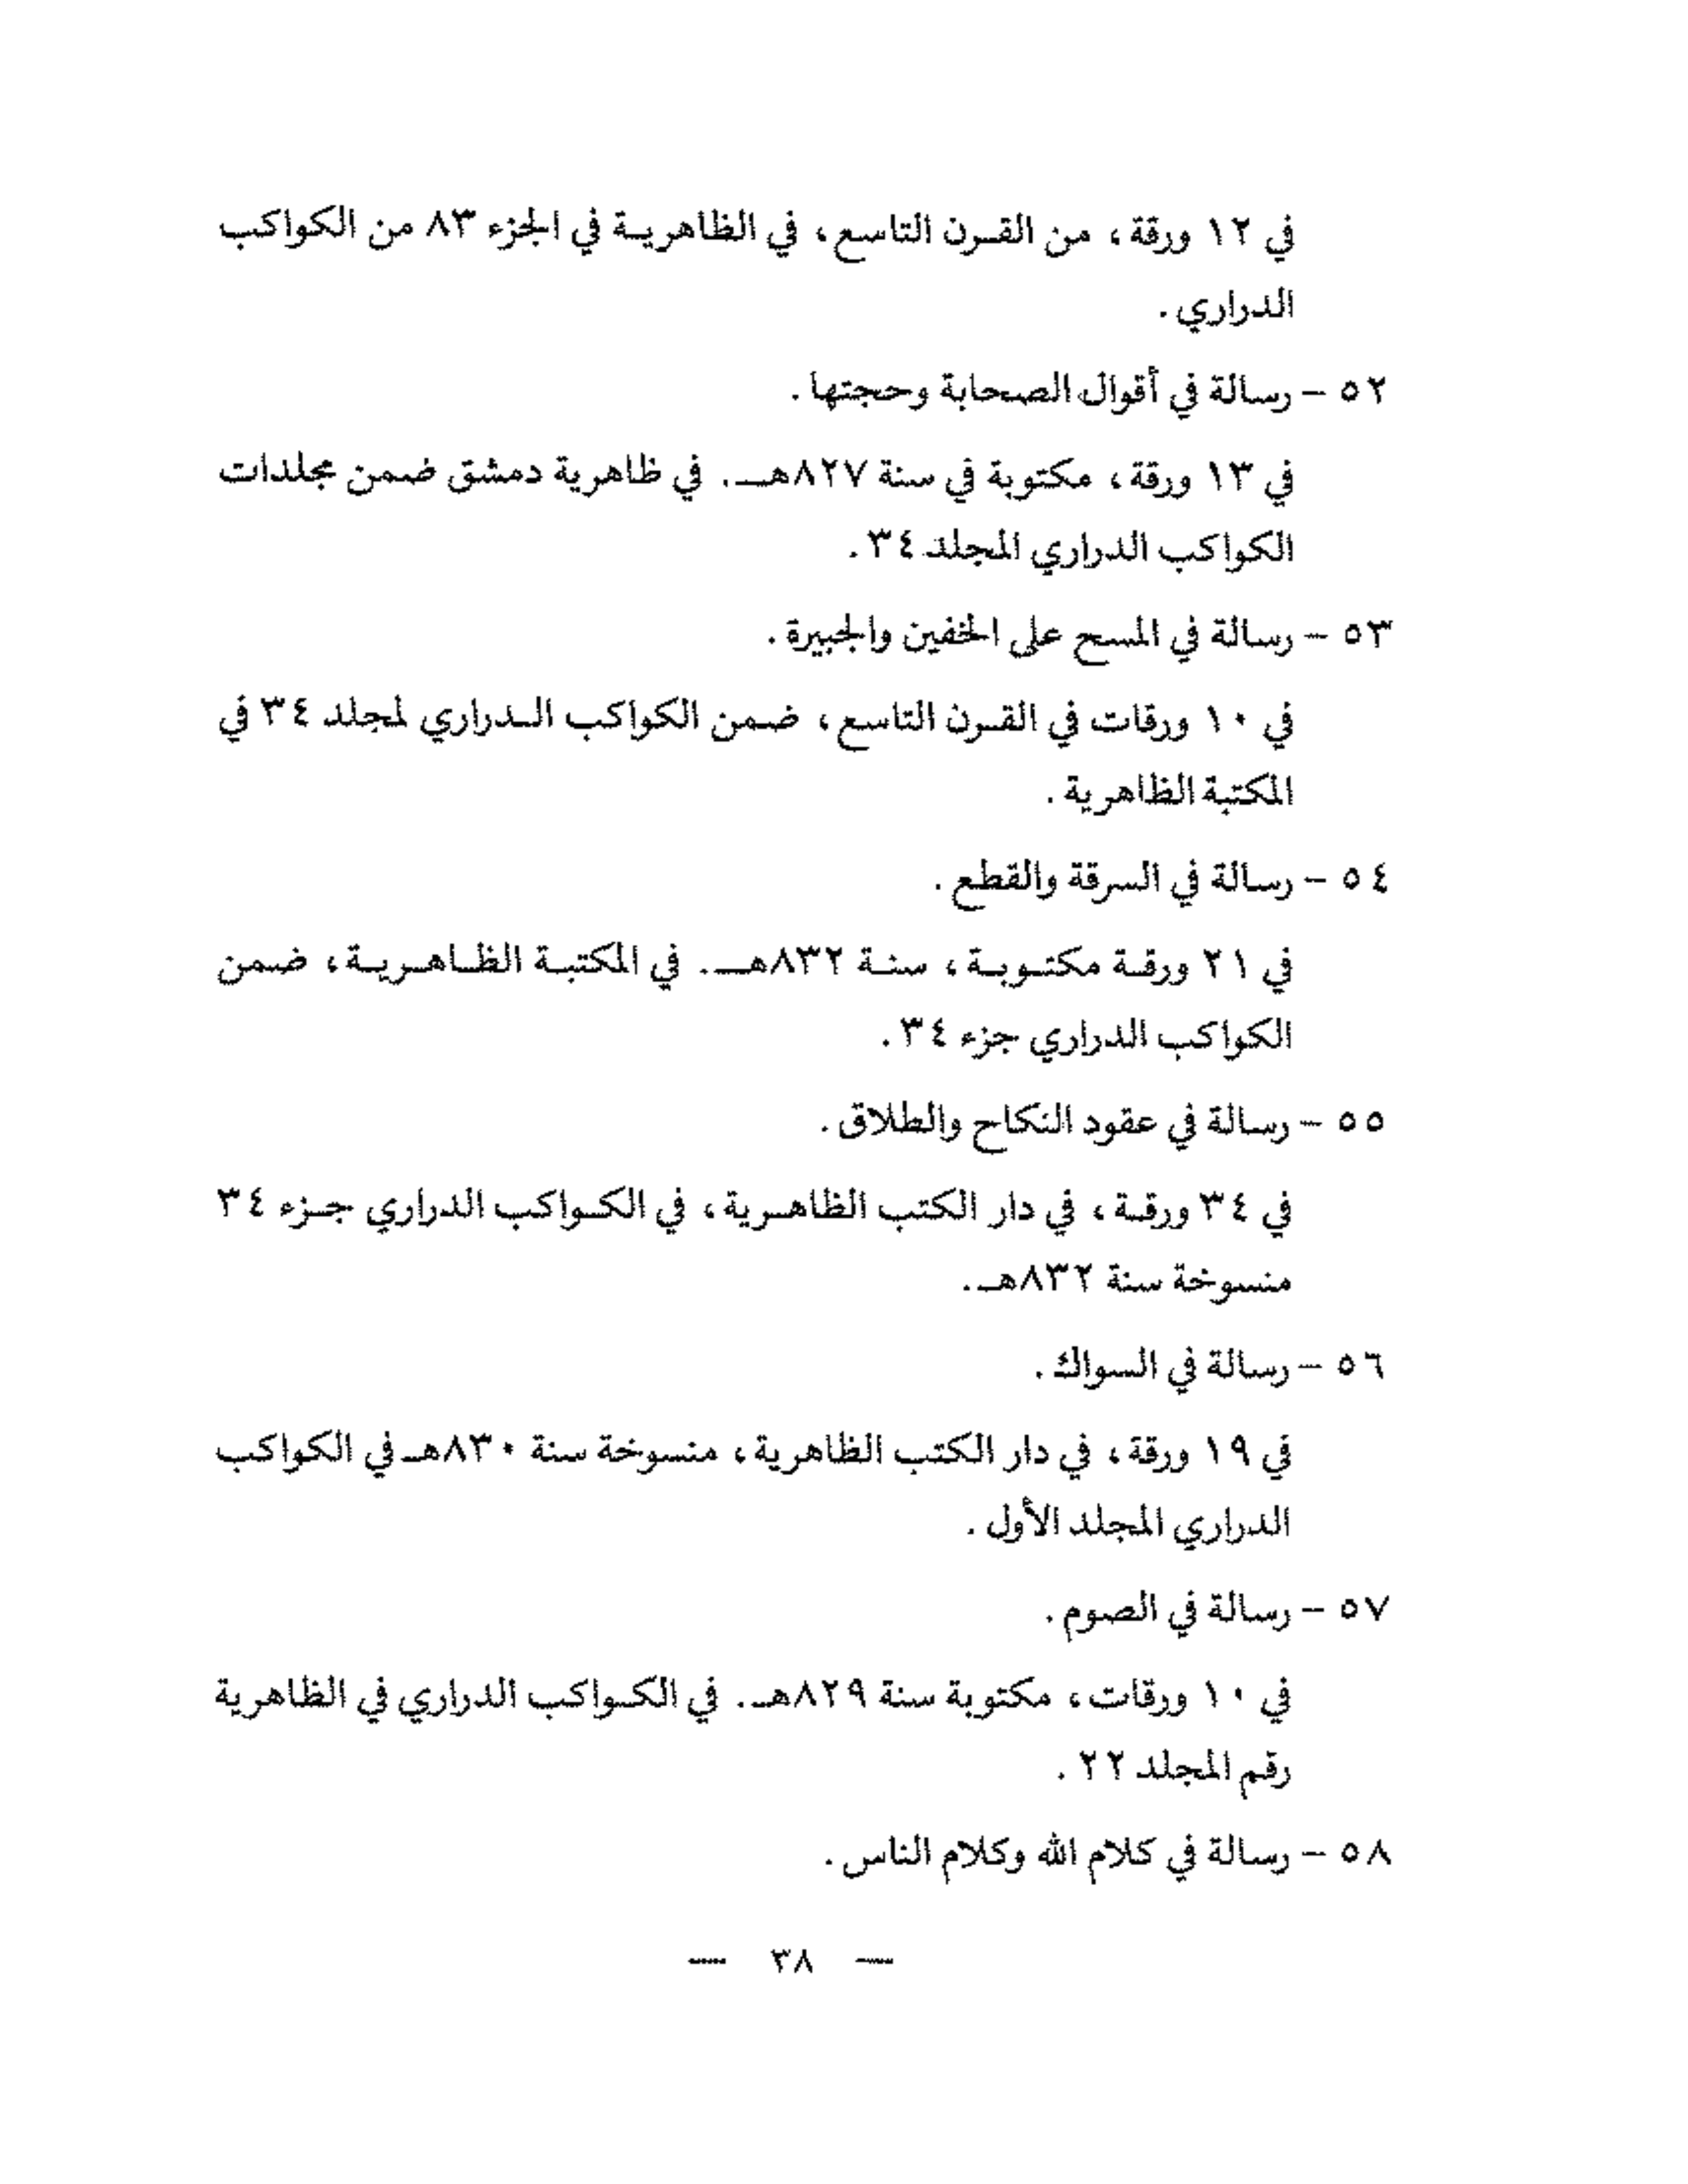 في ١٢ ورقة ، من القرن التاسع ، في الظاهرية في الجزء ٨٣ من الكواكب
الدراري .
٥٢ – رسالة في أقوال الصحابة وحجتها .
في ١٣ ورقة ، مكتوبة في سنة ٨٢٧هـ . في ظاهرية دمشق ضمن مجلدات
الكواكب الدراري المجلد ٣٤ .
٥٣ – رسالة في المسح على الخفين والجبيرة .
في ١٠ ورقات في القرن التاسع ، ضمن الكواكب الدراري لمجلد ٣٤ في
المكتبة الظاهرية .
٥٤ – رسالة في السرقة والقطع .
في ٢١ ورقة مكتوبة ، سنة ٨٣٢هـ . في المكتبة الظاهرية ، ضمن
الكواكب الدراري جزء ٣٤ .
٥٥ – رسالة في عقود النكاح والطلاق .
في ٣٤ ورقة ، في دار الكتب الظاهرية ، في الكواكب الدراري جزء ٣٤
منسوخة سنة ٨٣٢هـ .
٥٦ – رسالة في السواك .
في ١٩ ورقة ، في دار الكتب الظاهرية ، منسوخة سنة ٨٣٠هـ في الكواكب
الدراري المجلد الأول .
٥٧ – رسالة في الصوم .
في ١٠ ورقات ، مكتوبة سنة ٨٢٩هـ . في الكواكب الدراري في الظاهرية
رقم المجلد ٢٢ .
٥٨ – رسالة في كلام الله وكلام الناس .
— ٣٨ —